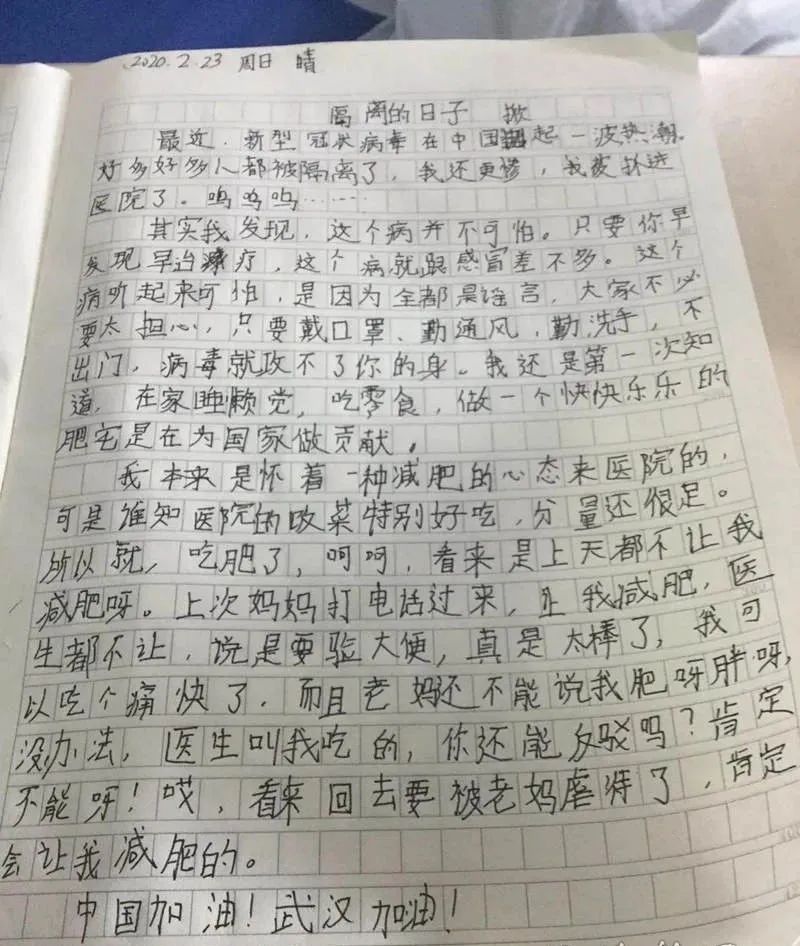 2020.2.23 周日 晴
隔离的日子 掀
最近，新型冠状病毒在中国起一波热潮。
好多好多人都被隔离了，我还更惨，我被抓进
医院了。呜呜呜……
其实我发现，这个病并不可怕。只要你早
发现早治疗，这个病就跟感冒差不多。这个
病听起来可怕，是因为全都是谣言，大家不必
要太担心，只要戴口罩、勤通风，勤洗手，不
出门，病毒就攻不了你的身。我还是第一次知
道，在家睡懒觉，吃零食，做一个快快乐乐的
肥宅是在为国家做贡献。
我本来是怀着一种减肥的心态来医院的，
可是谁知医院的饭菜特别好吃，分量还很足。
所以就，吃肥了，呵呵，看来是上天都不让我
减肥呀。上次妈妈打电话过来，让我减肥，医
生都不让，说是要验大便，真是太棒了，我可
以吃个痛快了，而且老妈还不能说我肥呀胖呀，
没办法，医生叫我吃的，你还能反驳吗？肯定
不能呀！哎，看来回去要被老妈虐待了，肯定
会让我减肥的。
中国加油！武汉加油！